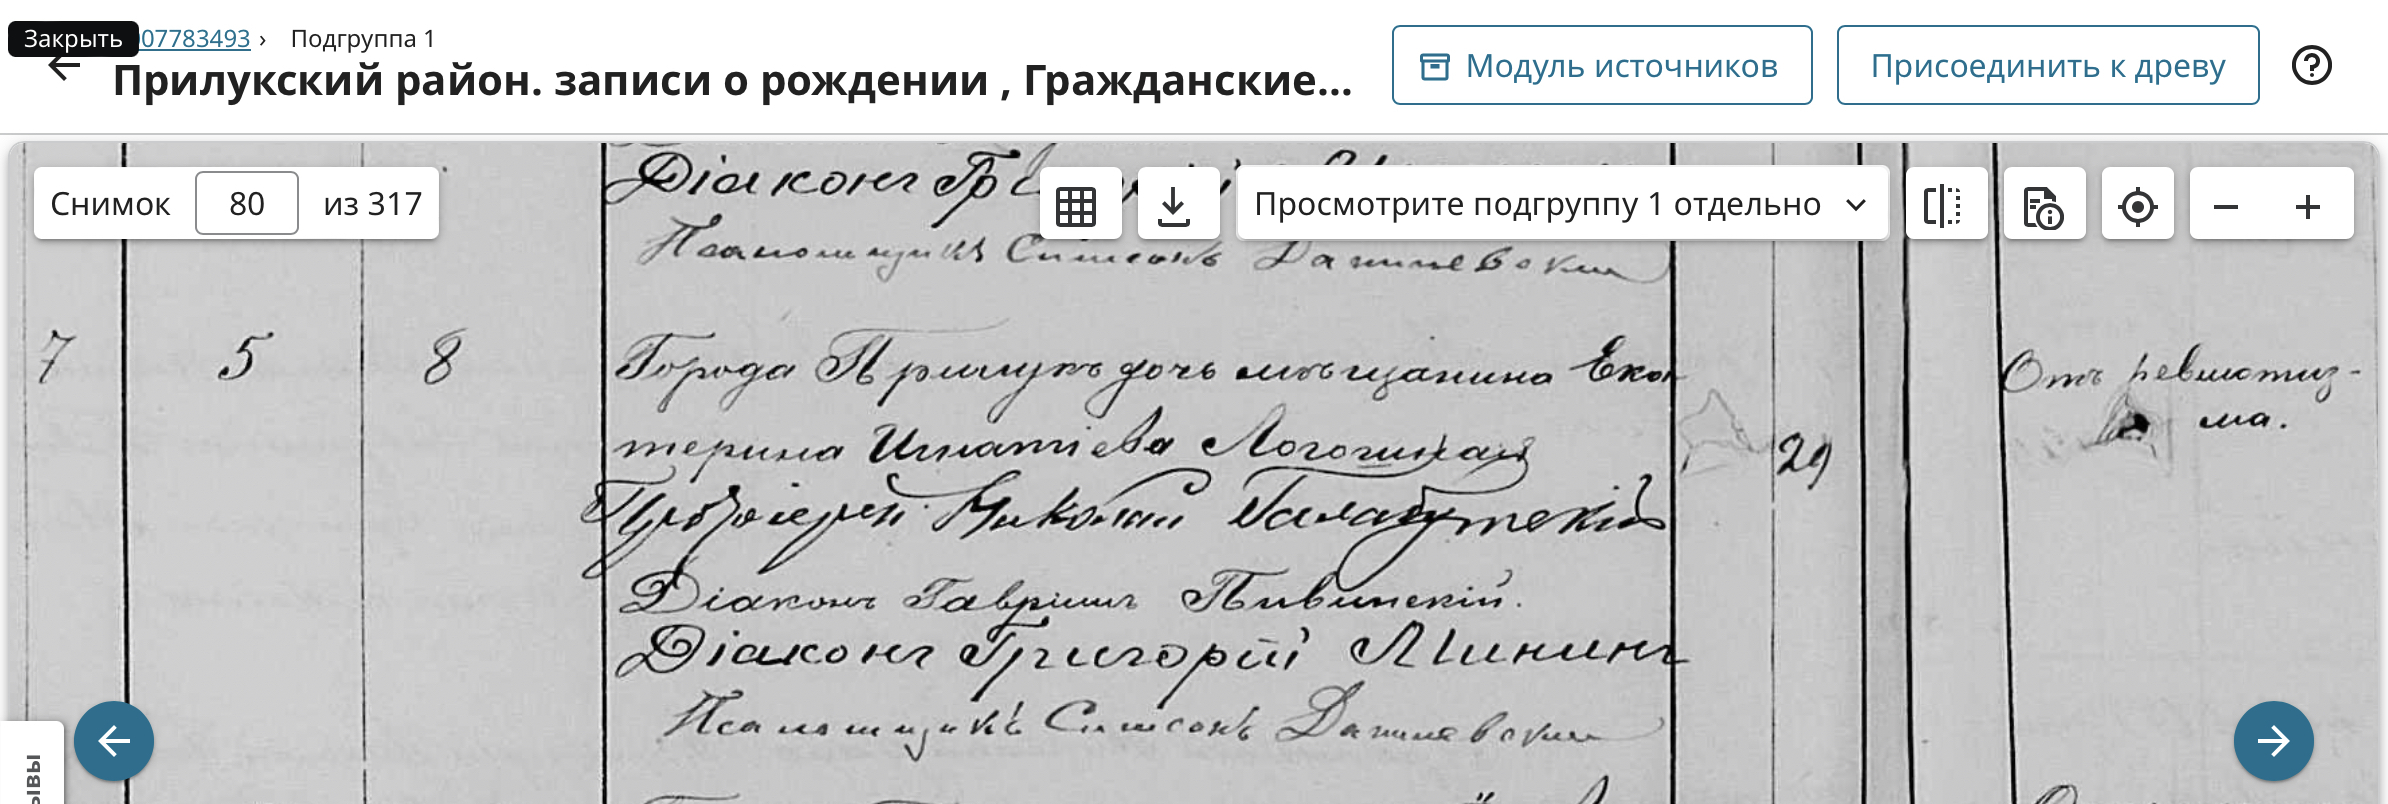 Закрыть
07783493 › Подгруппа 1
Прилукский район. записи о рождении , Гражданские...
Модуль источников
Присоединить к древу
Снимок 80 из 317
Просмотрите подгруппу 1 отдельно
Діаконъ
Псаломщикъ Симеонъ Данилевскій
7 5 8 Города Прилукъ дочь мѣщанина Ека
терина Игнатіева 29
Отъ ревматиз-
ма.
Протоіерей Николай
Діаконъ Гавріилъ
Діаконъ Григорій Мининъ
Псаломщикъ Симеонъ Данилевскій
ывы